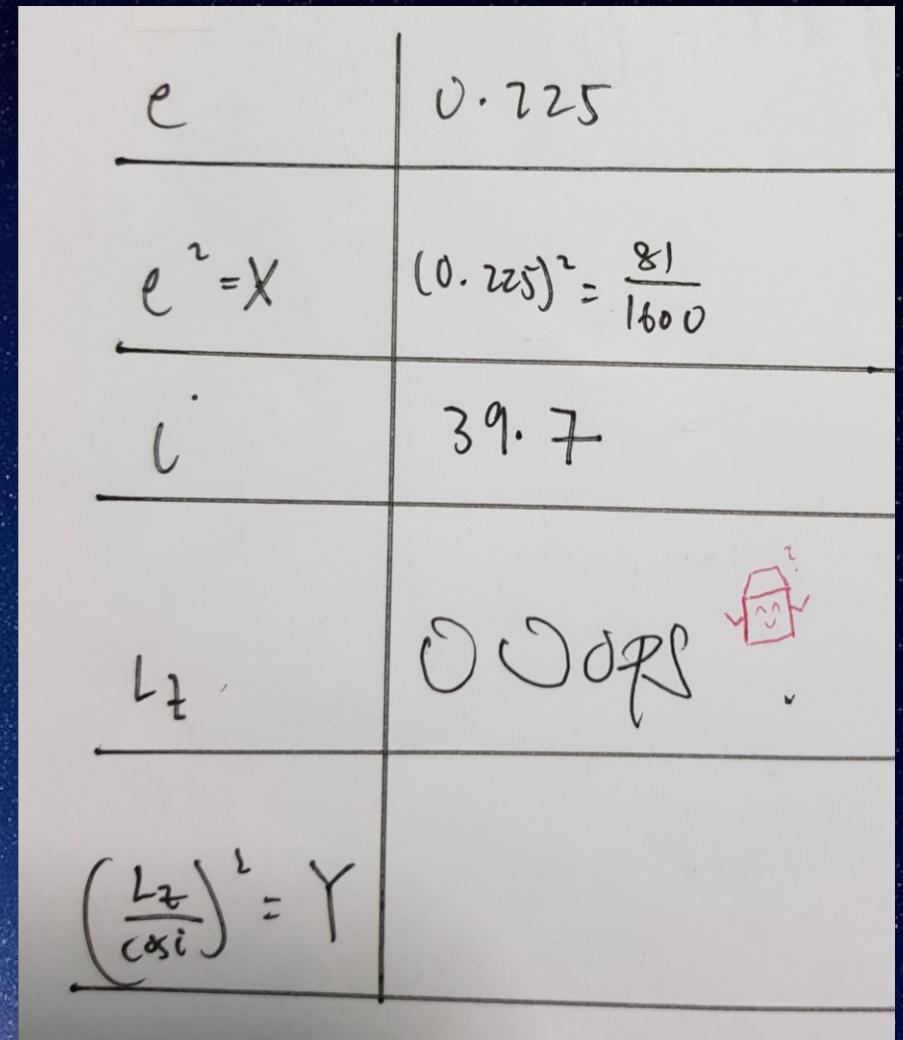 e 0.225
e² = X (0.225)² = 81/1600
i 39.7
Lz OOops ?
(Lz/cosi)² = Y